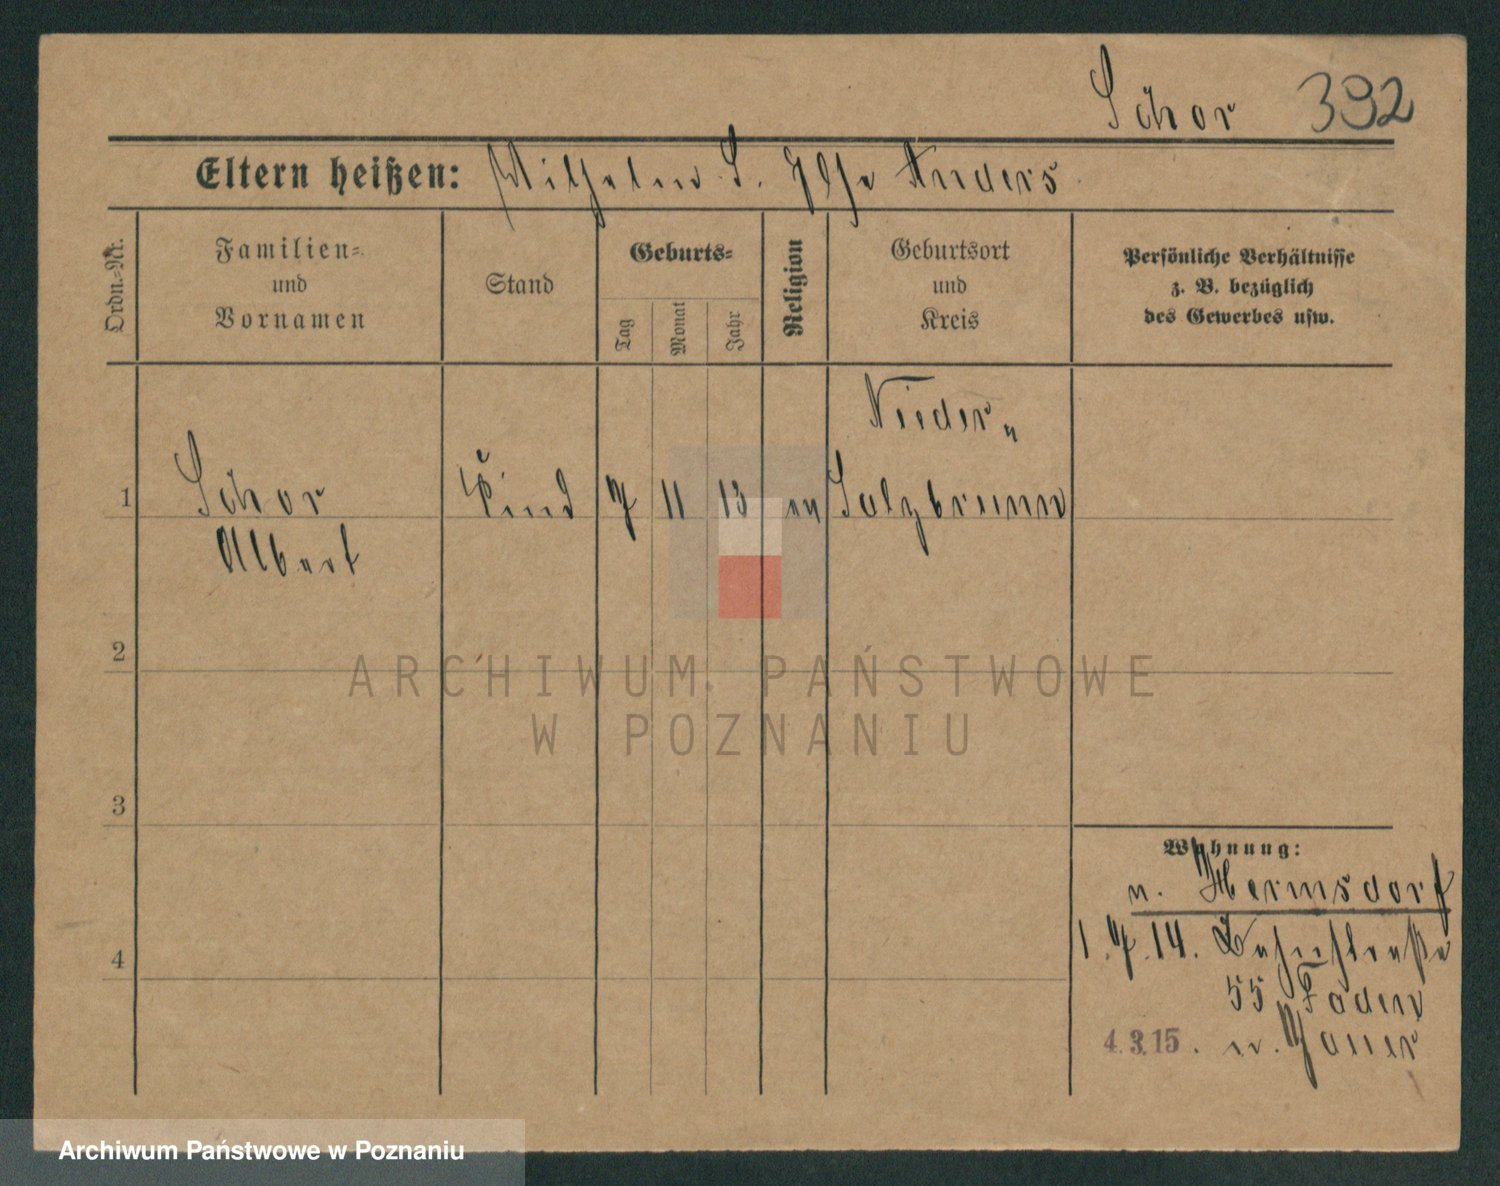 Schor 392
Eltern heißen: Wilhelm S. Anders
Ordn.-Nr.
Familien-
und
Vornamen
Stand
Geburts-
Tag
Monat
Jahr
Religion
Geburtsort
und
Kreis
Persönliche Verhältnisse
z. B. bezüglich
des Gewerbes usw.
Nieder
1 Schor Kind 7 11 13 ev Salzbrunn
Albert
2
ARCHIWUM PAŃSTWOWE
W POZNANIU
3
Wohnung:
n. Hermsdorf
4 1.7.14. Bahnstraße
55 Faden
4.3.15. n. Jauer
Archiwum Państwowe w Poznaniu